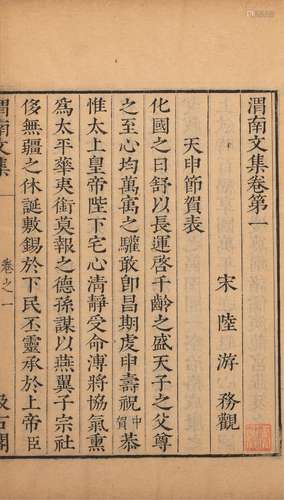 渭南文集卷第一
宋 陸游 務觀
天申節賀表
化國之日舒以長運啓千齡之盛天子之父尊
之至心均萬㝢之驩敢卽昌期虔申壽祝中賀恭
惟太上皇帝陛下宅心清靜受命溥將協氣熏
爲太平華夷銜莫報之德孫謀以燕翼子宗社
侈無疆之休誕敷錫於下民丕靈承於上帝臣
渭南文集
卷之一
汲古閣